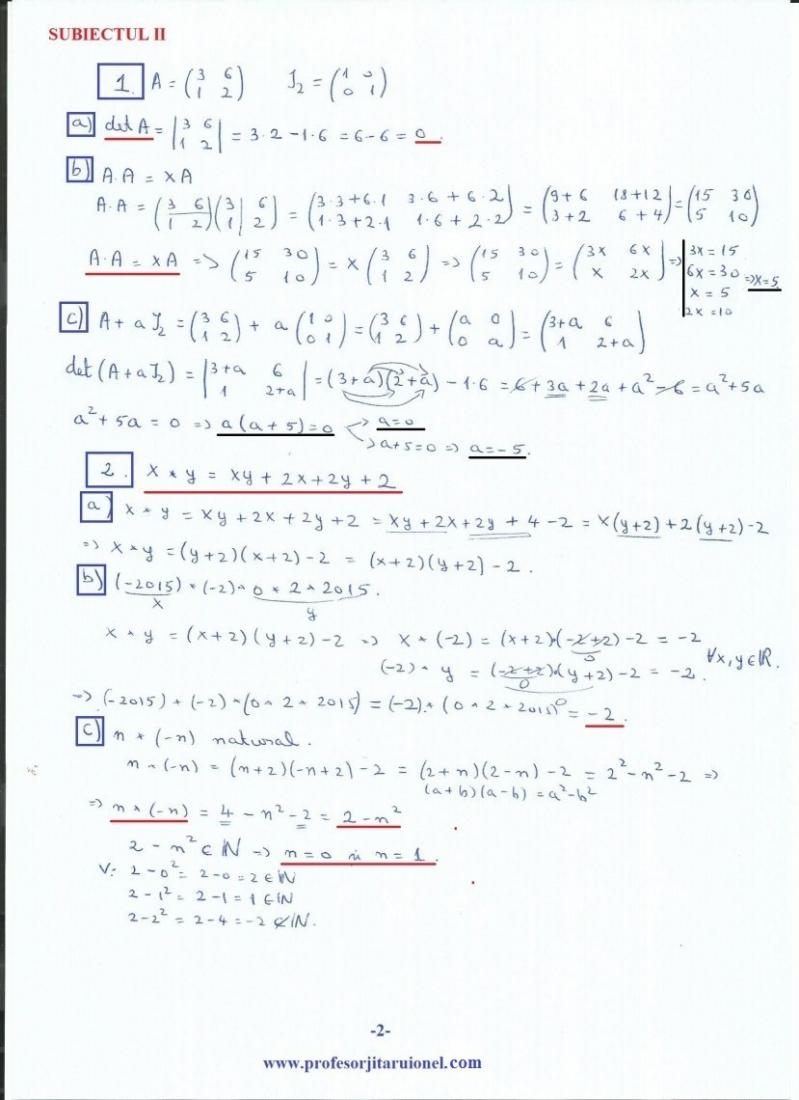 SUBIECTUL II
1. A = (3 6 / 1 2) I₂ = (1 0 / 0 1)
a) det A = |3 6 / 1 2| = 3·2 - 1·6 = 6 - 6 = 0.
b) A·A = xA
A·A = (3 6 / 1 2)(3 6 / 1 2) = (3·3+6·1 3·6+6·2 / 1·3+2·1 1·6+2·2) = (9+6 18+12 / 3+2 6+4) = (15 30 / 5 10)
A·A = xA => (15 30 / 5 10) = x (3 6 / 1 2) => (15 30 / 5 10) = (3x 6x / x 2x) => | 3x = 15 / 6x = 30 / x = 5 / 2x = 10 => x = 5
c) A + aI₂ = (3 6 / 1 2) + a (1 0 / 0 1) = (3 6 / 1 2) + (a 0 / 0 a) = (3+a 6 / 1 2+a)
det(A+aI₂) = |3+a 6 / 1 2+a| = (3+a)(2+a) - 1·6 = 6 + 3a + 2a + a² - 6 = a² + 5a
a² + 5a = 0 => a(a+5) = 0 a = 0
a + 5 = 0 => a = -5.
2. x * y = xy + 2x + 2y + 2
a) x * y = xy + 2x + 2y + 2 = xy + 2x + 2y + 4 - 2 = x(y+2) + 2(y+2) - 2
=> x * y = (y+2)(x+2) - 2 = (x+2)(y+2) - 2.
b) (-2015) * (-2) * 0 * 2 * 2015.
x y
x * y = (x+2)(y+2) - 2 => x * (-2) = (x+2)·(-2+2) - 2 = -2
0
(-2) * y = (-2+2)·(y+2) - 2 = -2. ∀x,y∈ℝ.
0
=> (-2015) * (-2) * (0 * 2 * 2015) = (-2) * (0 * 2 * 2015) = -2.
c) n * (-n) natural.
n * (-n) = (n+2)(-n+2) - 2 = (2+n)(2-n) - 2 = 2² - n² - 2 =>
(a+b)(a-b) = a² - b²
=> n * (-n) = 4 - n² - 2 = 2 - n²
2 - n² ∈ ℕ => n = 0 și n = 1.
V: 2 - 0² = 2 - 0 = 2 ∈ ℕ
2 - 1² = 2 - 1 = 1 ∈ ℕ
2 - 2² = 2 - 4 = -2 ∉ ℕ.
-2-
www.profesorjitaruionel.com